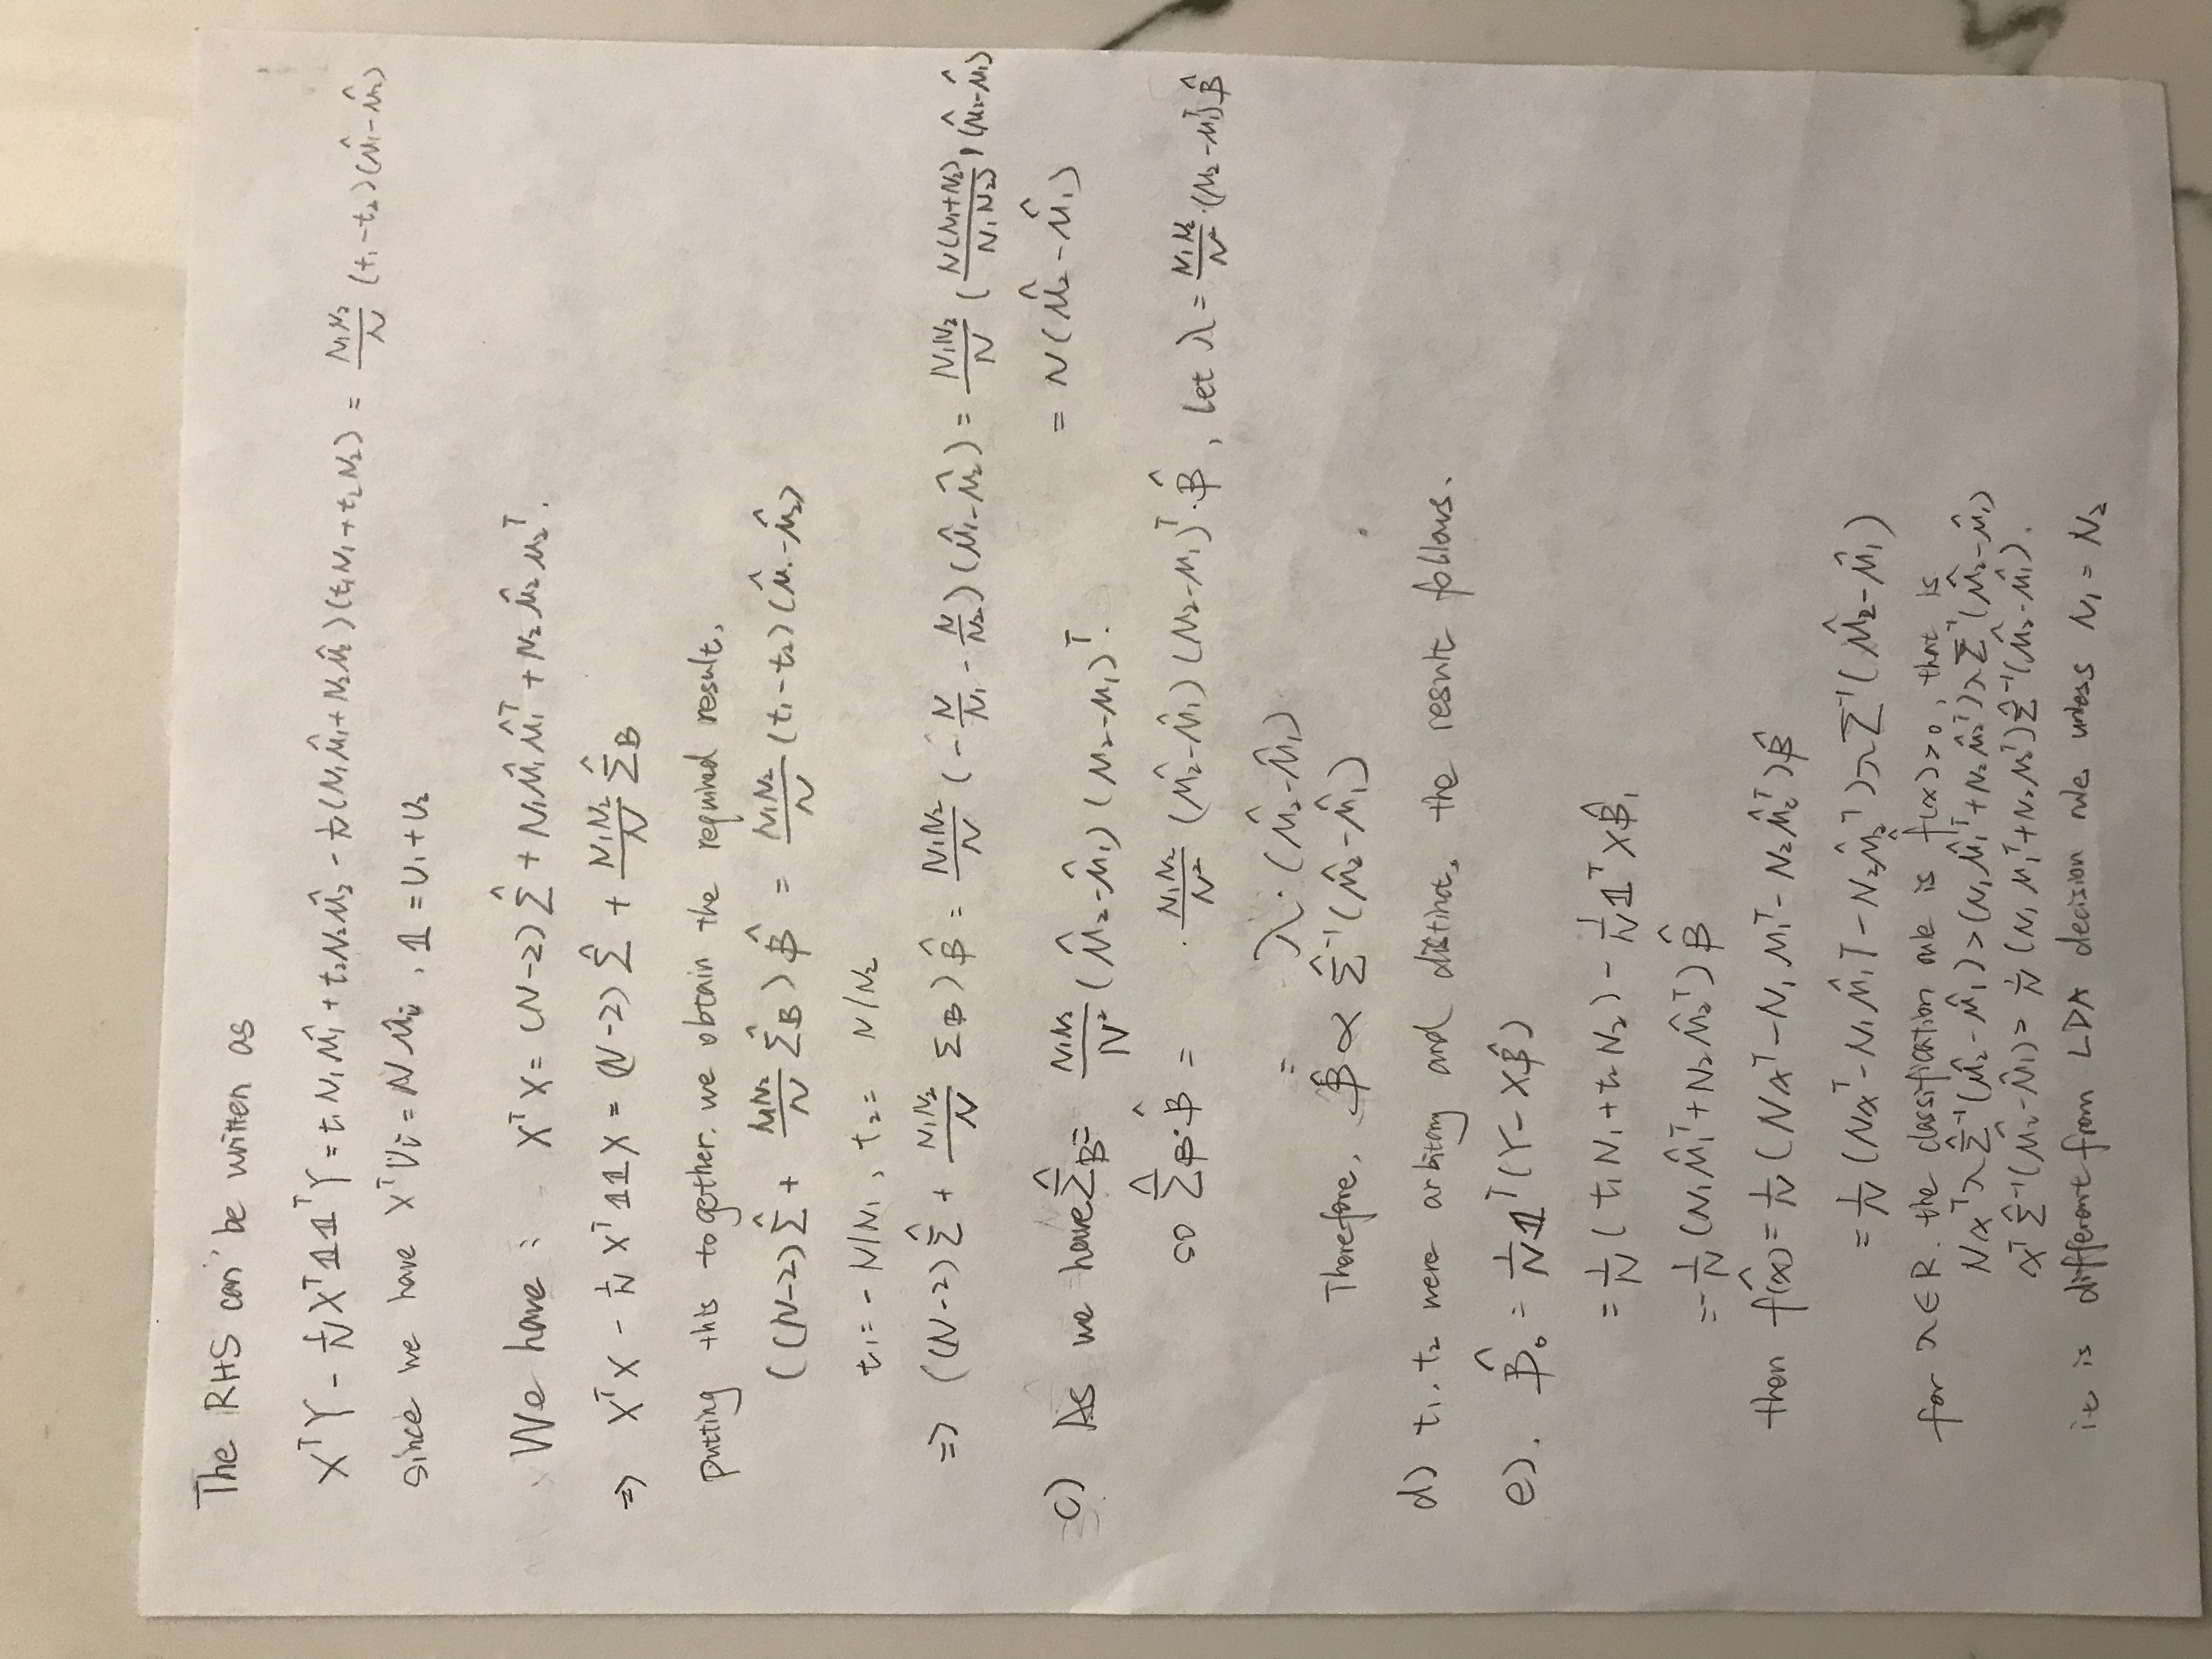 The RHS can be written as
XᵀY - 1/N Xᵀ𝟙𝟙ᵀY = t₁N₁μ̂₁ + t₂N₂μ̂₂ - 1/N (N₁μ̂₁ + N₂μ̂₂)(t₁N₁ + t₂N₂) = N₁N₂/N (t₁-t₂)(μ̂₁-μ̂₂)
since we have XᵀUᵢ = Nμ̂ᵢ, 𝟙 = U₁+U₂
We have : XᵀX = (N-2)Σ̂ + N₁μ̂₁μ̂₁ᵀ + N₂μ̂₂μ₂ᵀ.
⇒ XᵀX - 1/N Xᵀ𝟙𝟙X = (N-2)Σ̂ + N₁N₂/N Σ̂B
putting this together. we obtain the required result,
((N-2)Σ̂ + N₁N₂/N Σ̂B) β̂ = N₁N₂/N (t₁-t₂)(μ̂₁-μ̂₂)
t₁ = -N/N₁, t₂ = N/N₂
⇒ ((N-2)Σ̂ + N₁N₂/N ΣB) β̂ = N₁N₂/N (-N/N₁ - N/N₂)(μ̂₁-μ̂₂) = N₁N₂/N (N(N₁+N₂)/N₁N₂)(μ̂₂-μ̂₁)
= N(μ̂₂-μ̂₁)
c) As we have Σ̂B = N₁N₂/N² (μ̂₂-μ̂₁)(μ₂-μ₁)ᵀ.
so Σ̂B·β̂ = N₁N₂/N² (μ̂₂-μ̂₁)(μ₂-μ₁)ᵀ·β̂, let λ = N₁N₂/N² ·(μ₂-μ₁)ᵀβ̂
= λ·(μ̂₂-μ̂₁)
Therefore, β̂ ∝ Σ̂⁻¹(μ̂₂-μ̂₁)
d) t₁, t₂ were arbitary and distinct, the result follows.
e). β̂₀ = 1/N 𝟙ᵀ(Y-Xβ̂)
= 1/N (t₁N₁ + t₂N₂) - 1/N 𝟙ᵀXβ̂₁
= -1/N (N₁μ̂₁ᵀ + N₂μ̂₂ᵀ)β̂
then f̂(x) = 1/N (Nxᵀ - N₁μ₁ᵀ - N₂μ̂₂ᵀ)β̂
= 1/N (Nxᵀ - N₁μ̂₁ᵀ - N₂μ̂₂ᵀ)λΣ⁻¹(μ̂₂-μ̂₁)
for λ∈R. the classification rule is f̂(x)>0, that is
Nxᵀλ Σ̂⁻¹(μ̂₂-μ̂₁) > (N₁μ̂₁ᵀ + N₂μ̂₂ᵀ)λΣ⁻¹(μ̂₂-μ̂₁)
xᵀΣ̂⁻¹(μ̂₂-μ̂₁) > 1/N (N₁μ₁ᵀ + N₂μ₂ᵀ)Σ̂⁻¹(μ̂₂-μ̂₁).
it is different from LDA decision rule unless N₁ = N₂